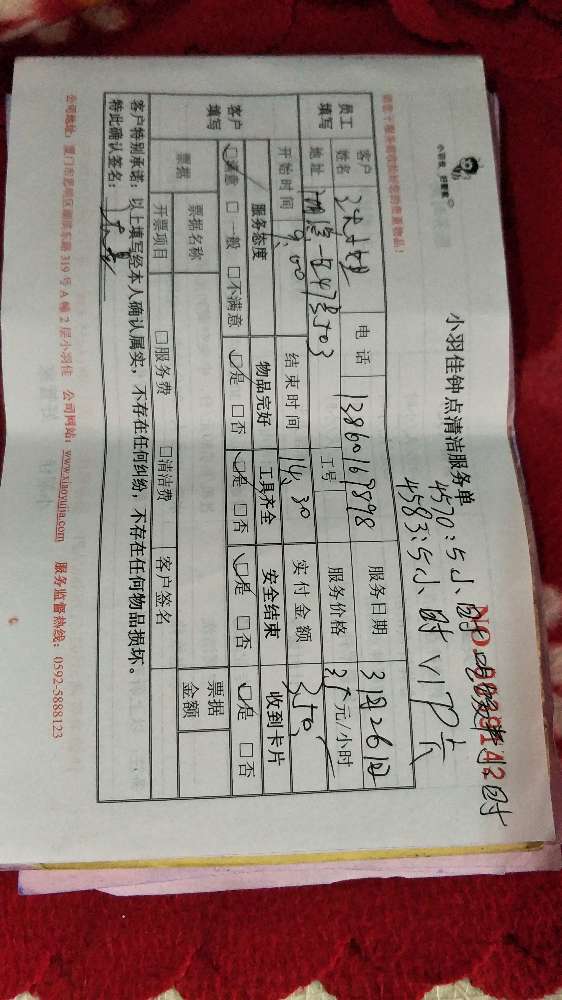 小羽佳 好管家
小羽佳钟点清洁服务单
4570:5小时
4583:5小时 VIP卡
请您于服务前收拾好您的贵重物品!
员工填写
客户姓名 电话 13860167898 服务日期 3月26日
地址 工号 服务价格 35元/小时
开始时间 9:00 结束时间 14:30 实付金额 350
客户填写
服务态度 物品完好 工具齐全 安全结束 收到卡片
☑满意 □一般 □不满意 ☑是 □否 ☑是 □否 ☑是 □否 ☑是 □否
票据 票据名称 票据金额
开票项目 □服务费 □清洁费 客户签名
客户特别承诺:以上填写经本人确认属实,不存在任何纠纷,不存在任何物品损坏。
特此确认签名:
公司地址:厦门市思明区湖滨东路319号A幢2层小羽佳 公司网站:www.xiaoyujia.com 服务监督热线:0592-5888123